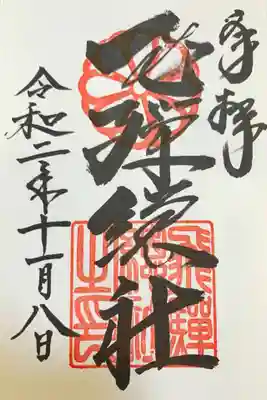 奉拝
飛騨総社
令和二年十一月八日
飛驒
總社
之印